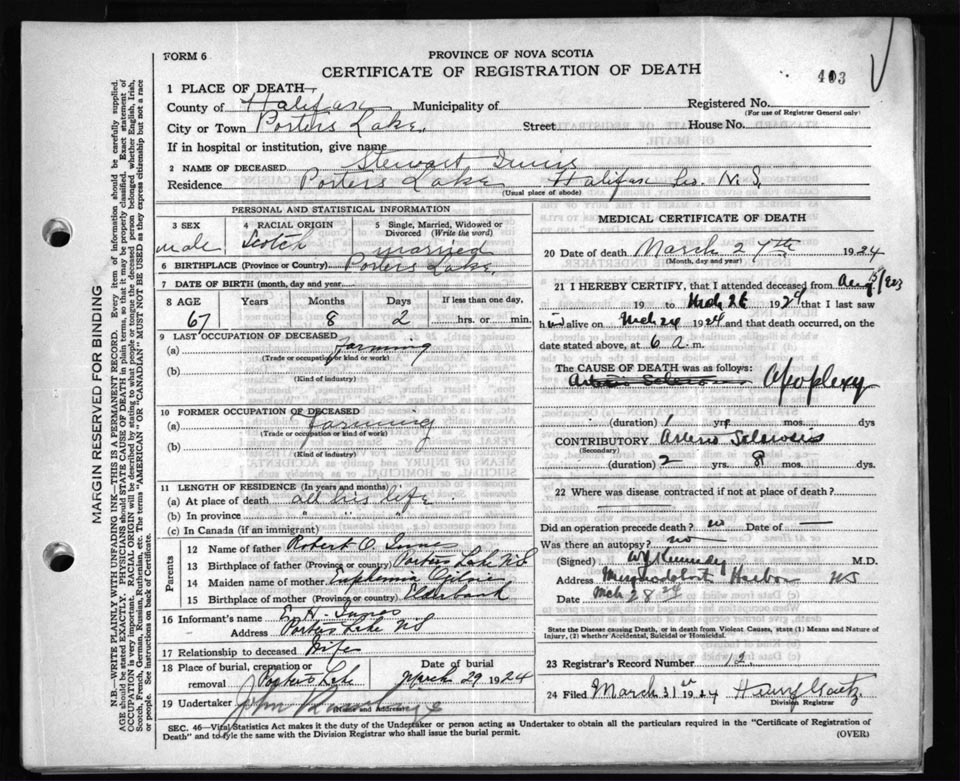 FORM 6
PROVINCE OF NOVA SCOTIA
CERTIFICATE OF REGISTRATION OF DEATH
403
1 PLACE OF DEATH—
County of Halifax Municipality of Registered No.
(For use of Registrar General only)
City or Town Porters Lake. Street House No.
If in hospital or institution, give name
2 NAME OF DECEASED Stewart Innis
Residence Porters Lake Halifax Co. N.S.
(Usual place of abode)
PERSONAL AND STATISTICAL INFORMATION
3 SEX male
4 RACIAL ORIGIN Scotch
5 Single, Married, Widowed or Divorced (Write the word) married
6 BIRTHPLACE (Province or Country) Porters Lake.
7 DATE OF BIRTH (month, day and year)
8 AGE Years Months Days If less than one day,
67 8 2 hrs. or min.
9 LAST OCCUPATION OF DECEASED
(a) Farming
(Trade or occupation or kind of work)
(b)
(Kind of industry)
10 FORMER OCCUPATION OF DECEASED
(a) Farming
(Trade or occupation or kind of work)
(b)
(Kind of industry)
11 LENGTH OF RESIDENCE (In years and months)
(a) At place of death all his life
(b) In province " " "
(c) In Canada (if an immigrant)
Parents
12 Name of father Robert O. Innes
13 Birthplace of father (Province or country) Porters Lake NS
14 Maiden name of mother Euphemia Ogilvie
15 Birthplace of mother (Province or country) Elderbank
16 Informant's name E. H. Innes
Address Porters Lke NS
17 Relationship to deceased Wife
18 Place of burial, cremation or removal Porters Lke
Date of burial March 29 1924
19 Undertaker John
(Name and address)
MEDICAL CERTIFICATE OF DEATH
20 Date of death March 27th 1924
(Month, day and year)
21 I HEREBY CERTIFY, that I attended deceased from Aug 15/1923
19 to Mch 26 1924 that I last saw
him alive on Mch 24 1924 and that death occurred, on
date stated above, at 6 a.m.
The CAUSE OF DEATH was as follows:
Arterio Sclerosis Apoplexy
(duration) 1 yrs mos. dys
CONTRIBUTORY Arterio Sclerosis
(Secondary)
(duration) 2 yrs. 8 mos. dys.
22 Where was disease contracted if not at place of death?
Did an operation precede death? no Date of —
Was there an autopsy? no
(Signed) W Kennedy M.D.
Address Musquodoboit Harbor NS
Date Mch 28 24
State the Disease causing Death, or in death from Violent Causes, state (1) Means and Nature of Injury, (2) whether Accidental, Suicidal or Homicidal.
23 Registrar's Record Number 12
24 Filed March 31st 1924
Division Registrar
SEC. 46—Vital Statistics Act makes it the duty of the Undertaker or person acting as Undertaker to obtain all the particulars required in the "Certificate of Registration of
Death" and to file the same with the Division Registrar who shall issue the burial permit.
(OVER)
MARGIN RESERVED FOR BINDING
N.B.—WRITE PLAINLY WITH UNFADING INK—THIS IS A PERMANENT RECORD. Every item of information should be carefully supplied.
AGE should be stated EXACTLY. PHYSICIANS should STATE CAUSE OF DEATH in plain terms, so that it may be properly classified. Exact statement of
OCCUPATION is very important. RACIAL ORIGIN will be described by stating to what people or tongue the deceased person belonged whether English, Irish,
Scotch, French, German, Russian, Ruthenian, etc. The terms "AMERICAN" or "CANADIAN" MUST NOT BE USED as they express citizenship but not a race
or people. See instructions on back of Certificate.